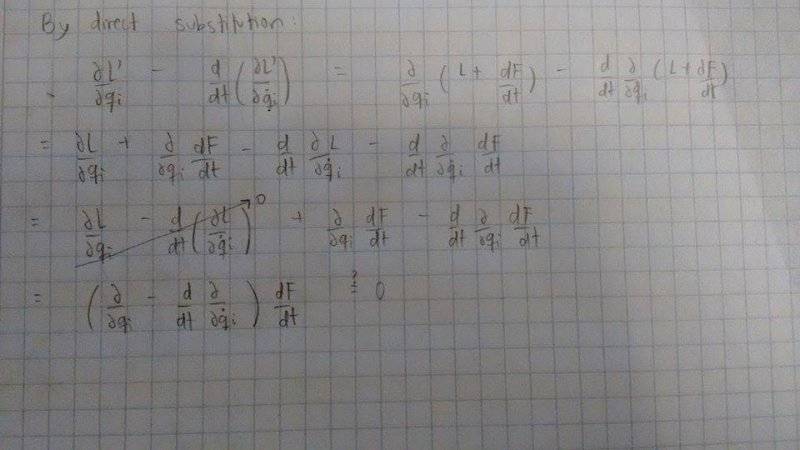 By direct substitution:
∂L'/∂qi − d/dt (∂L'/∂q̇i) = ∂/∂qi (L + dF/dt) − d/dt ∂/∂q̇i (L + dF/dt)
= ∂L/∂qi + ∂/∂qi dF/dt − d/dt ∂L/∂q̇i − d/dt ∂/∂q̇i dF/dt
= ∂L/∂qi − d/dt (∂L/∂q̇i) 0 + ∂/∂qi dF/dt − d/dt ∂/∂q̇i dF/dt
= (∂/∂qi − d/dt ∂/∂q̇i) dF/dt ≟ 0